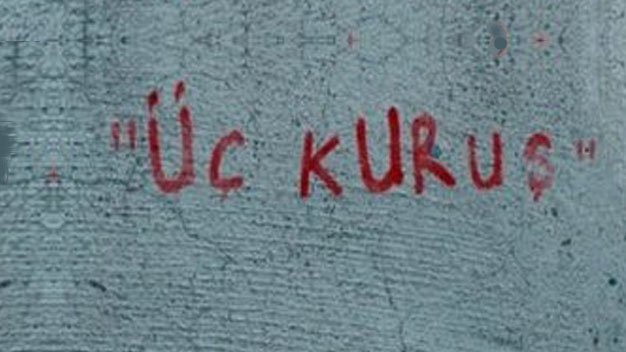 "Üç KURUŞ"